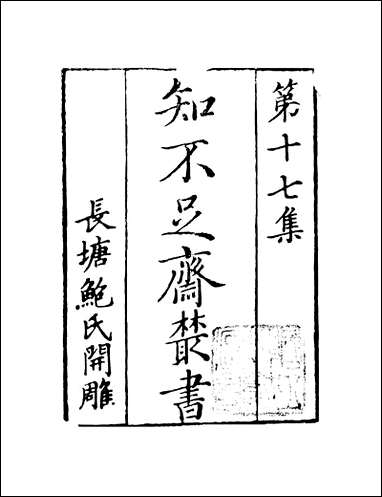 第十七集
知不足齋叢書
長塘鮑氏開雕